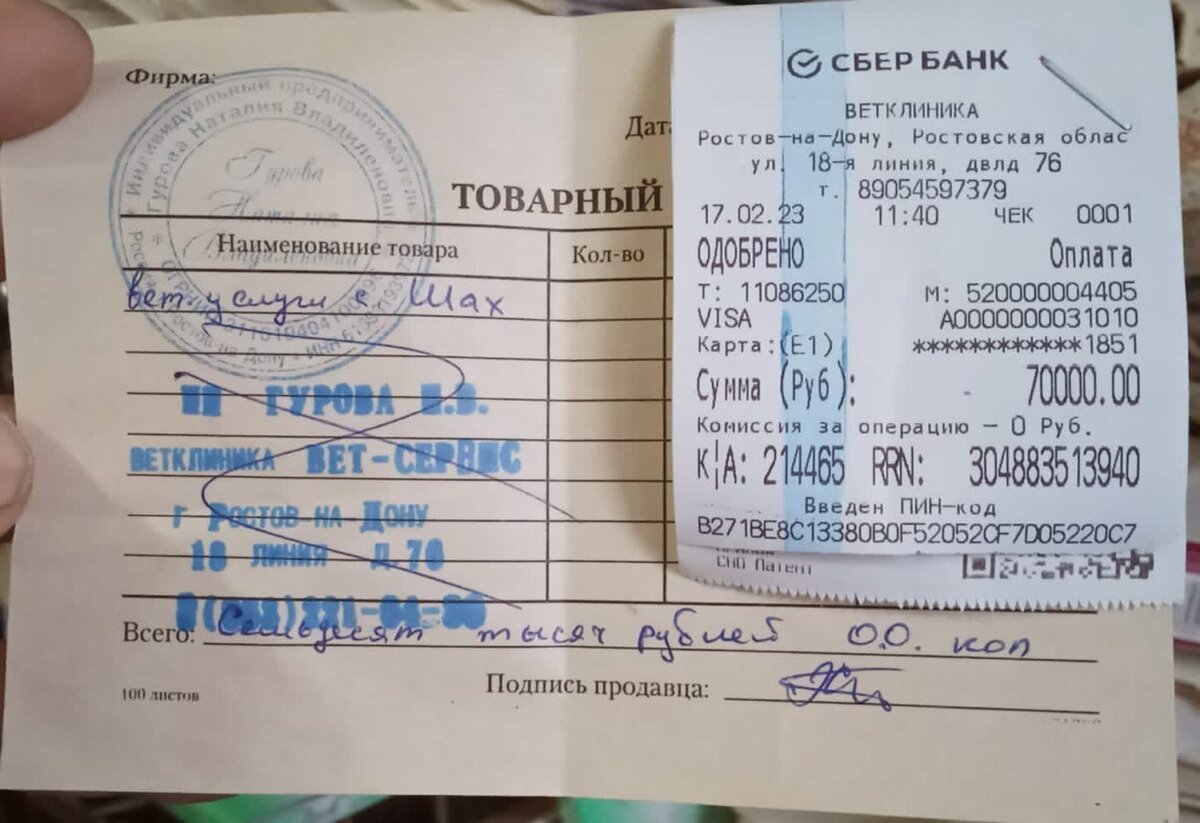 Фирма:
Индивидуальный предприниматель
Гурова Наталия Владиленовна
Гурова
Наталия
Владиленовна
Дата
ТОВАРНЫЙ
Наименование товара
Кол-во
вет услуги с. Шах
ИП ГУРОВА Н.В.
ВЕТКЛИНИКА ВЕТ-СЕРВИС
г Ростов на Дону
18 линия д.76
Всего: Семьдесят тысяч рублей О.О. коп
Подпись продавца:
100 листов
СБЕР БАНК
ВЕТКЛИНИКА
Ростов-на-Дону, Ростовская облас
ул. 18-я линия, двлд 76
т. 89054597379
17.02.23 11:40 ЧЕК 0001
ОДОБРЕНО Оплата
Т: 11086250 М: 520000004405
VISA A0000000031010
Карта:(E1) ************1851
Сумма (Руб): 70000.00
Комиссия за операцию – 0 Руб.
К/А: 214465 RRN: 304883513940
Введен ПИН-код
B271BE8C13380B0F52052CF7D05220C7